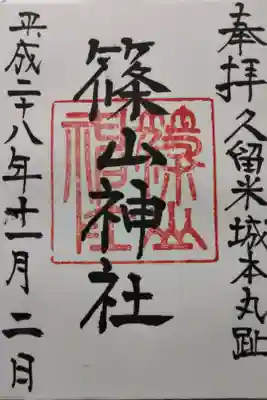 奉拝久留米城本丸趾
篠山神社
平成二十八年十一月二日